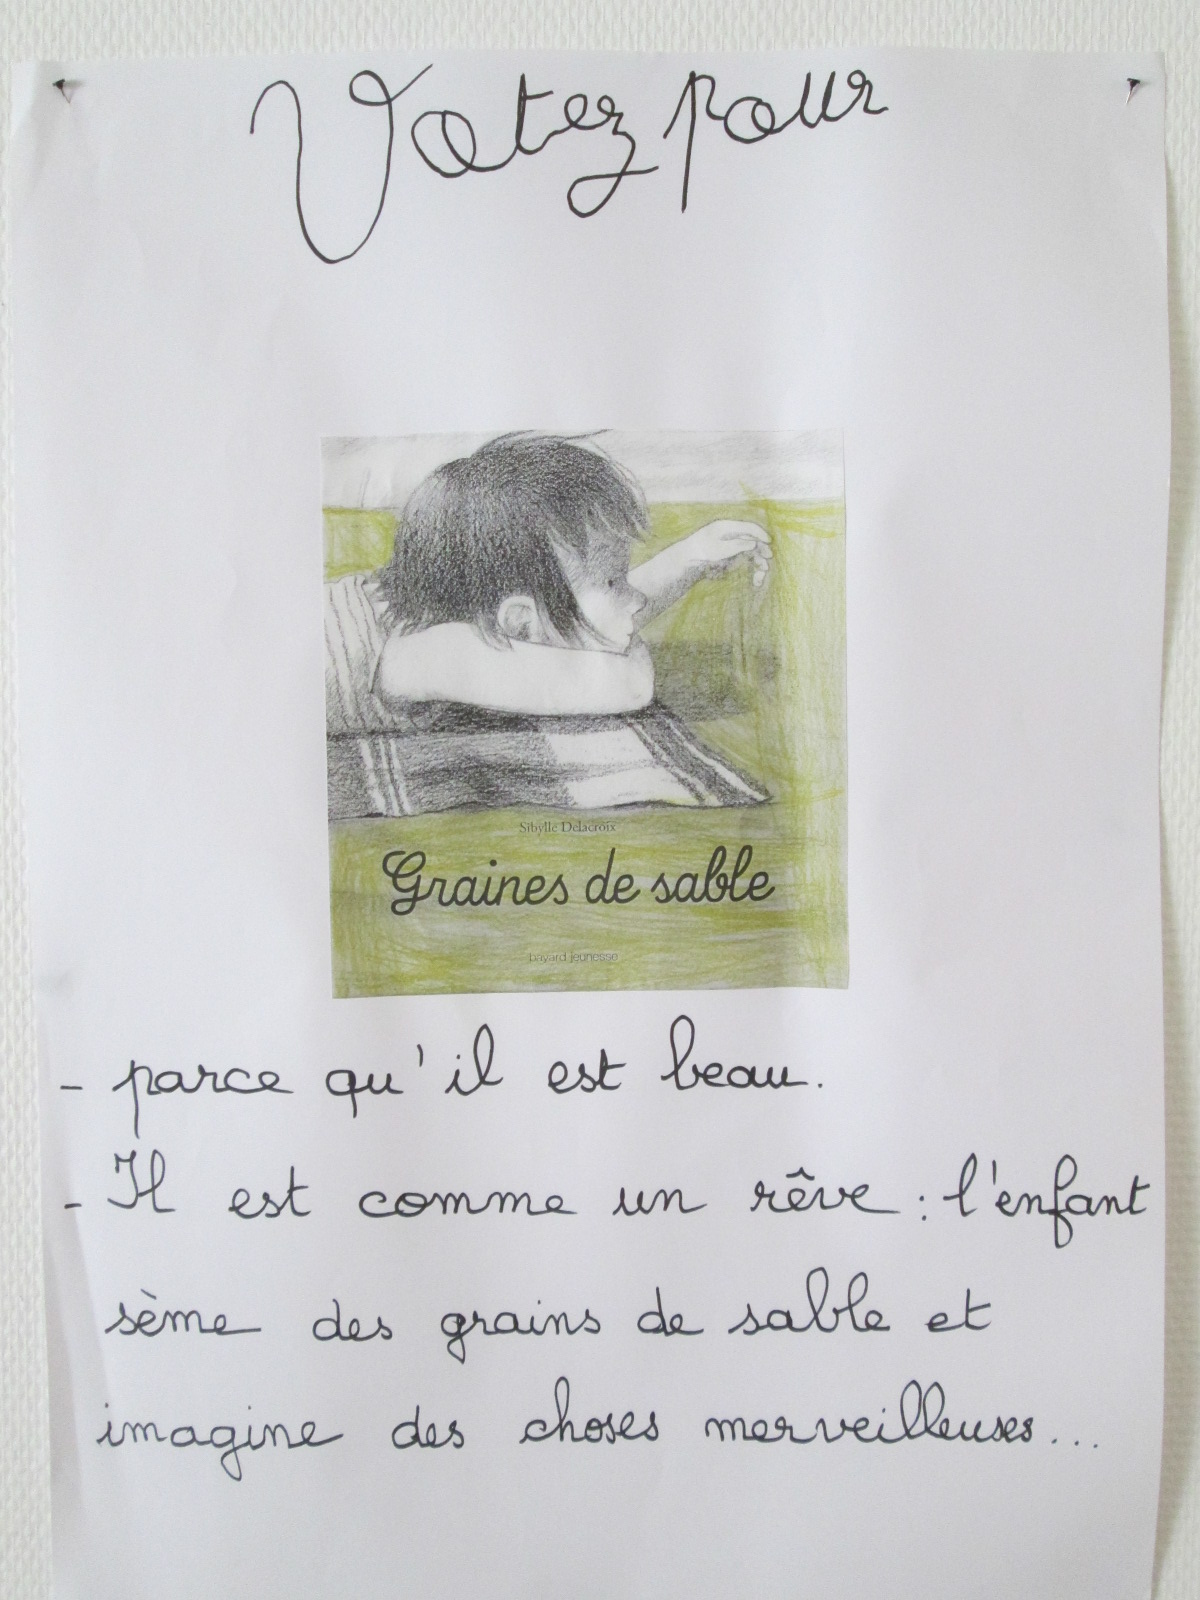 Votez pour
Sibylle Delacroix
Graines de sable
bayard jeunesse
- parce qu'il est beau.
- Il est comme un rêve : l'enfant
sème des grains de sable et
imagine des choses merveilleuses...